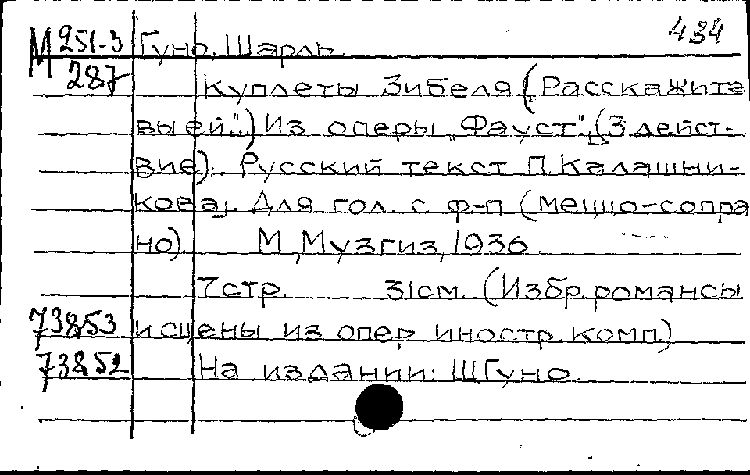 434
М 251-3 Гуно, Шарль.
287 Куплеты Зибеля (Расскажите
вы ей".) Из оперы „Фауст", (3 дейст-
вие). Русский текст П. Калашни-
кова. Для гол. с ф-п (меццо-сопра
но) М, Музгиз, 1936
7 стр. 31 см. (Избр. романсы
73853 и сцены из опер иностр. комп)
73852 На издании: Ш Гуно.